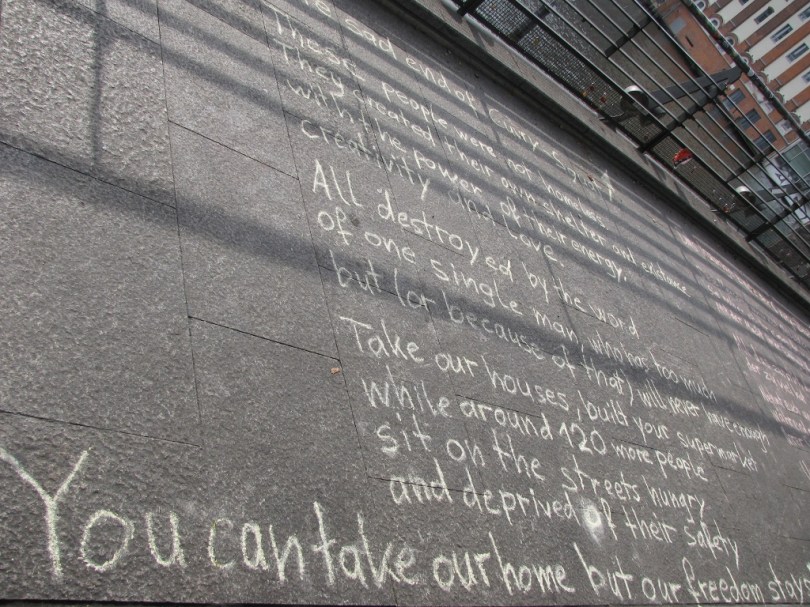 sad end of
These people were not homeless
They created their own shelter and existence
with the power of their energy,
creativity and Love.
All destroyed by the word
of one single man, who has too much
but (or because of that) will never have enough
Take our houses, build your supermarket
while around 120 more people
sit on the streets hungry
and deprived of their safety
You can take our home but our freedom stay